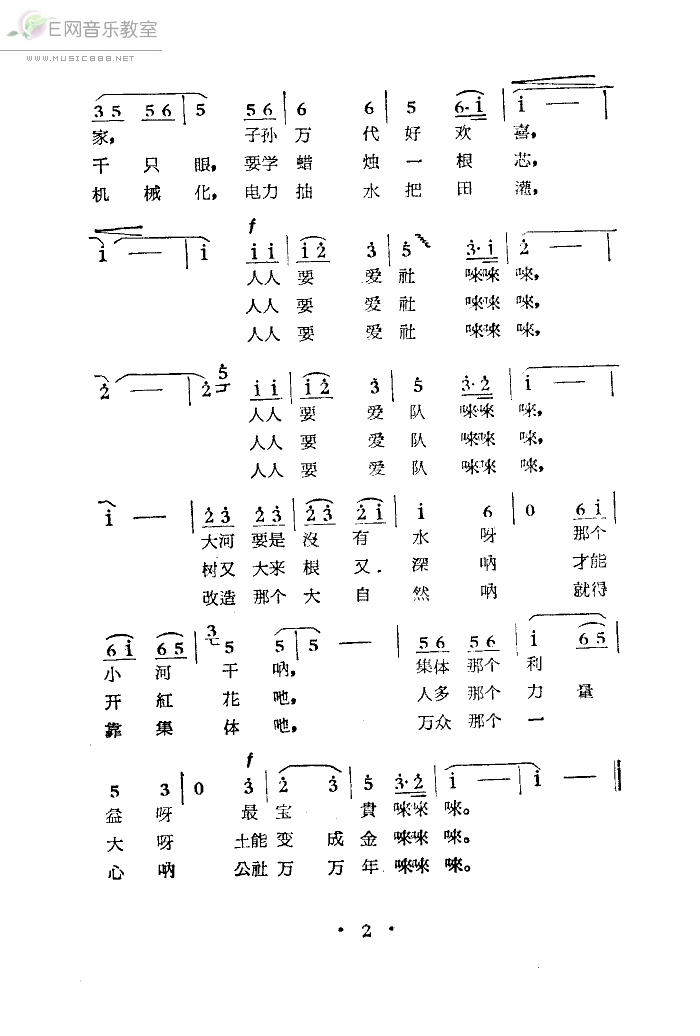 E网音乐教室
WWW.MUSIC888.NET
3 5 5 6 | 5 5 6 | 6 6 | 5 6·i | i — |
家， 子孙 万 代 好 欢 喜，
千 只 眼，要学 蜡 烛 一 根 芯，
机 械 化，电力 抽 水 把 田 灌，
i — | i f i i | i 2 3 | 5 3·i | 2 — |
人人 要 爱 社 唻唻 唻，
人人 要 爱 社 唻唻 唻，
人人 要 爱 社 唻唻 唻，
2 — | 2 5 i i | i 2 3 | 5 3·2 | i — |
人人 要 爱 队 唻唻 唻，
人人 要 爱 队 唻唻 唻，
人人 要 爱 队 唻唻 唻，
i — | 2 3 2 3 | 2 3 2 i | i 6 | 0 6 i |
大河 要是 沒 有 水 呀 那个
树又 大来 根 又 深 呐 才能
改造 那个 大 自 然 呐 就得
6 i 6 5 | 3 5 5 | 5 — | 5 6 5 6 | i 6 5 |
小 河 干 呐， 集体 那个 利
开 紅 花 吔， 人多 那个 力 量
靠 集 体 吔， 万众 那个 一
5 3 | 0 f 3 | 2 3 | 5 3·2 | i — | i — ‖
益 呀 最 宝 貴 唻唻 唻。
大 呀 土能 变 成 金 唻唻 唻。
心 呐 公社 万 万 年 唻唻 唻。
· 2 ·